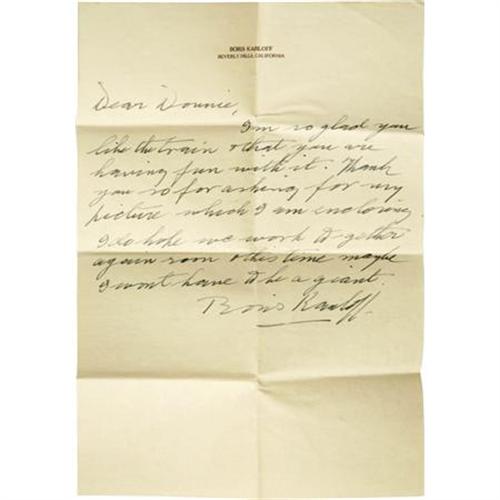 BORIS KARLOFF
BEVERLY HILLS, CALIFORNIA
Dear Donnie,
I'm so glad you
like the train & that you are
having fun with it. Thank
you so for asking for my
picture which I am enclosing
I do hope we work to gether
again soon & this time maybe
I wont have to be a giant.
Boris Karloff.